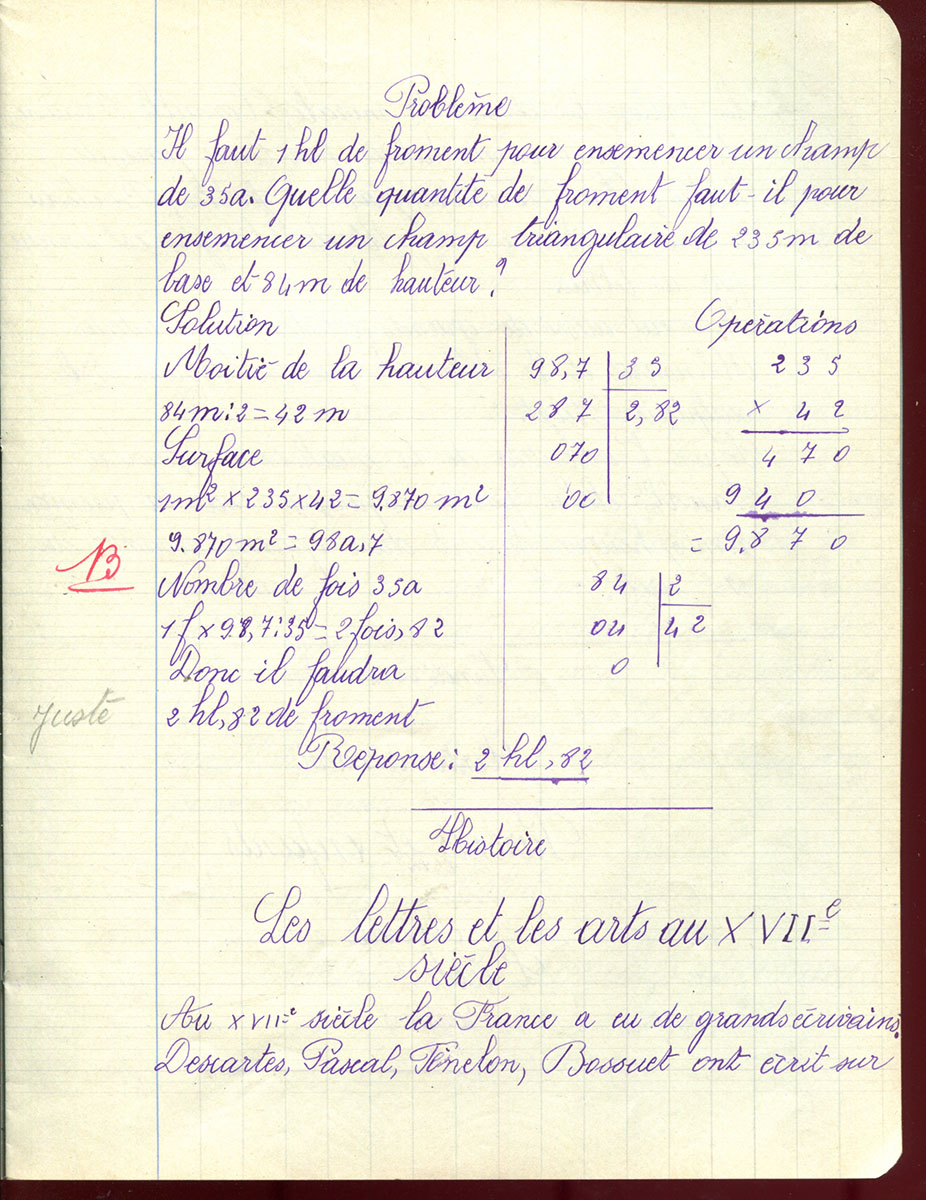 Problème
Il faut 1 hl de froment pour ensemencer un champ
de 35a. Quelle quantité de froment faut-il pour
ensemencer un champ triangulaire de 235m de
base et 84m de hauteur?
Solution
Opérations
Moitié de la hauteur
84m:2=42m
Surface
1m² x 235 x 42 = 9.870 m²
9.870m² = 98a,7
Nombre de fois 35a
1f x 98,7:35 = 2fois,82
Donc il faudra
2 hl,82 de froment
98,7 35
287 2,82
070
00
235
x 42
470
940
= 9.870
84 2
04 42
0
B
Juste
Réponse: 2 hl,82
Histoire
Les lettres et les arts au XVIIe
siècle
Au XVIIe siècle la France a eu de grands écrivains.
Descartes, Pascal, Fénelon, Bossuet ont écrit sur